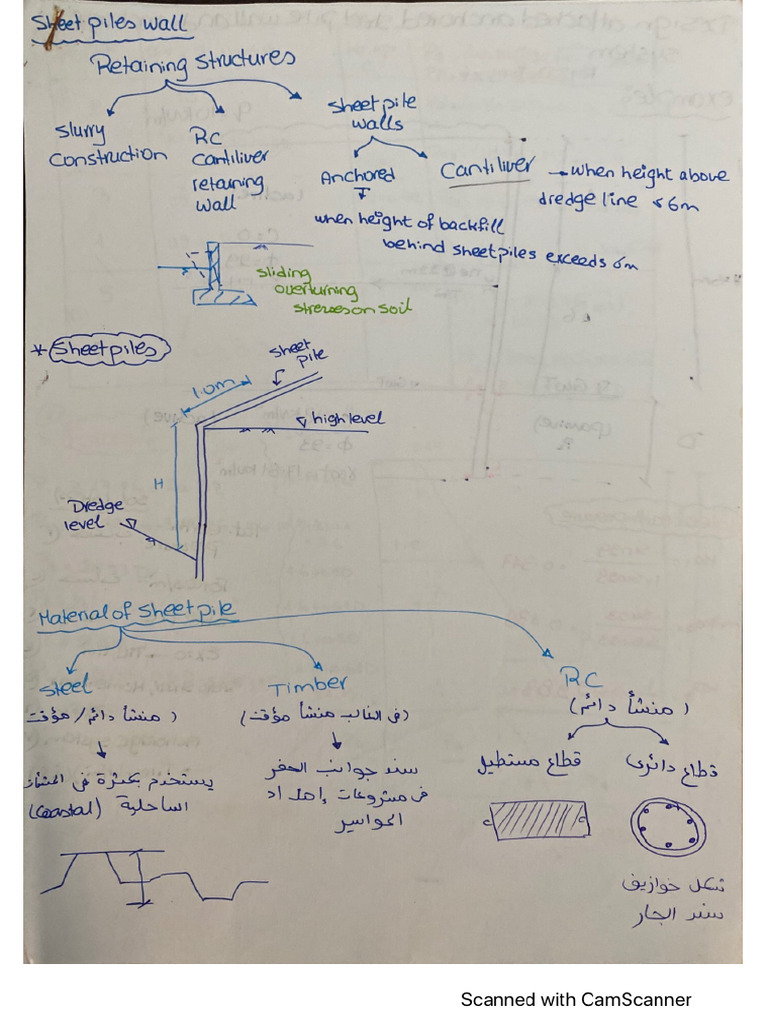 Sheet piles wall
Retaining structures
Slurry
Construction
RC
cantiliver
retaining
wall
sheet pile
walls
Anchored
when height of backfill
behind sheetpiles exceeds 6m
Cantiliver
when height above
dredge line < 6m
sliding
overturning
stresses on soil
* Sheetpiles
1.0m
sheet
pile
high level
H
Dredge
level
Material of sheetpile
steel
( منشأ دائم / مؤقت
يستخدم بكثرة فى المنشآت
الساحلية (coastal)
Timber
(فى الغالب منشأ مؤقت)
سند جوانب الحفر
فى مشروعات إمداد
المواسير
RC
( منشأ دائم )
قطاع مستطيل
قطاع دائرى
شكل خوازيق
سند الجار
Scanned with CamScanner